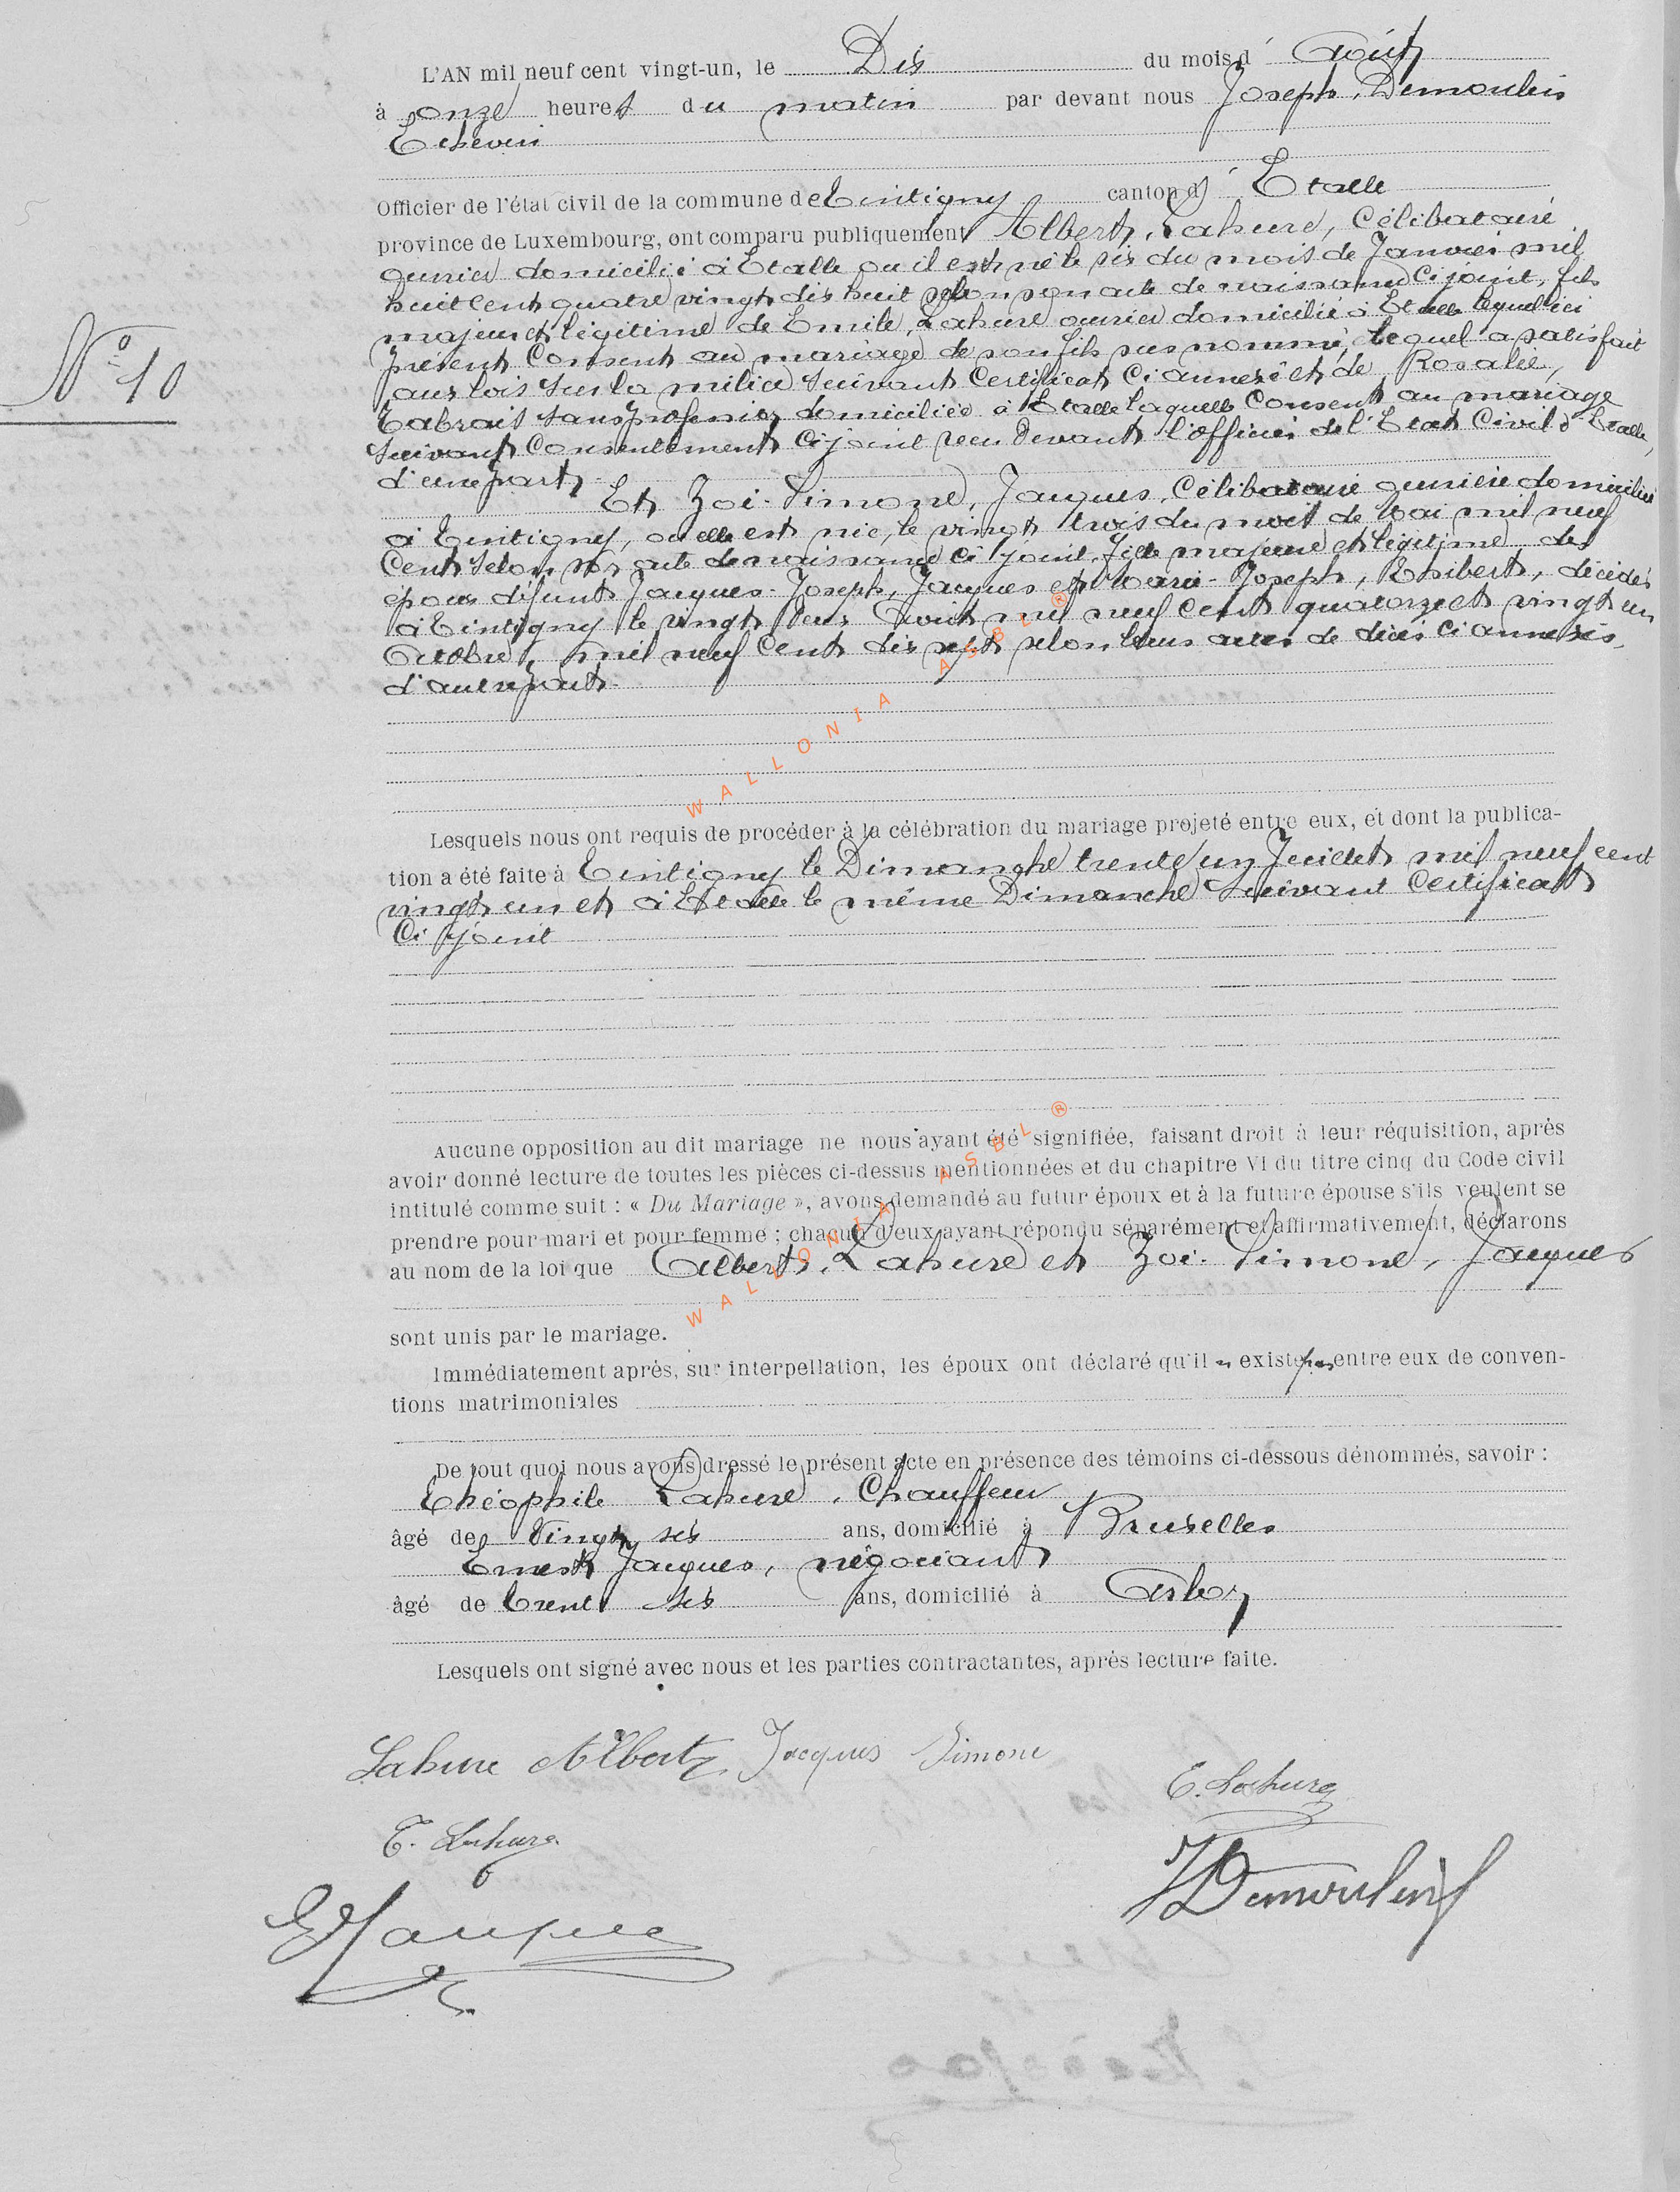 L'AN mil neuf cent vingt-un, le Dix du mois d' Août
à onze heures du matin par devant nous Joseph, Demoulin
Echevin
Officier de l'état civil de la commune de Tintigny canton d' Etalle
province de Luxembourg, ont comparu publiquement Albert, Lahure, Célibataire
ouvrier domicilié à Etalle ou il est né le six du mois de Janvier mil
huit cent quatre vingt dix huit selon son acte de naissance ci joint, fils
majeur et légitime de Emile, Lahure ouvrier domicilié à Etalle lequel ici
présent Consent au mariage de son fils sus nommé, lequel a satisfait
aux lois sur la milice suivant Certificat Ci annexé et de Rosalie,
Tabrais sans profession domiciliée à Etalle laquelle Consent au mariage
suivant Consentement Ci joint reçu devant l'officier de l'Etat Civil d'Etalle,
d'une part
Nº 10
Et Zoé-Simone, Jacques, Célibataire ouvrière domiciliée
à Tintigny, ou elle est née, le vingt trois du mois de Mai mil neuf
Cent selon son acte de naissance ci joint, fille majeure et légitime des
époux défunts Jacques-Joseph, Jacques et Marie-Joseph, Thibert, décédés
à Tintigny le vingt deux Août mil neuf Cent quatorze et vingt un
Octobre, mil neuf Cent dix sept selon leurs actes de décès ci annexés,
d'autre part.
Lesquels nous ont requis de procéder à la célébration du mariage projeté entre eux, et dont la publica-
tion a été faite à Tintigny le Dimanche trente un Juillet mil neuf cent
vingt un et à Etalle le même Dimanche Suivant Certificat
Ci joint
Aucune opposition au dit mariage ne nous ayant été signifiée, faisant droit à leur réquisition, après
avoir donné lecture de toutes les pièces ci-dessus mentionnées et du chapitre VI du titre cinq du Code civil
intitulé comme suit : « Du Mariage », avons demandé au futur époux et à la future épouse s'ils veulent se
prendre pour mari et pour femme ; chacun d'eux ayant répondu séparément et affirmativement, déclarons
au nom de la loi que Albert, Lahure et Zoé-Simone, Jacques
sont unis par le mariage.
Immédiatement après, sur interpellation, les époux ont déclaré qu'il n'existe pas entre eux de conven-
tions matrimoniales
De tout quoi nous avons dressé le présent acte en présence des témoins ci-dessous dénommés, savoir :
Théophile Lahure, Chauffeur
âgé de Vingt six ans, domicilié à Bruxelles
Ernest Jacques, négociant
âgé de trente six ans, domicilié à Arlon
Lesquels ont signé avec nous et les parties contractantes, après lecture faite.
Lahure Albert Jacques Simone
E. Lahure
T. Lahure
J Demoulin
E Jacques
WALLONIA ASBL ®
WALLONIA ASBL ®